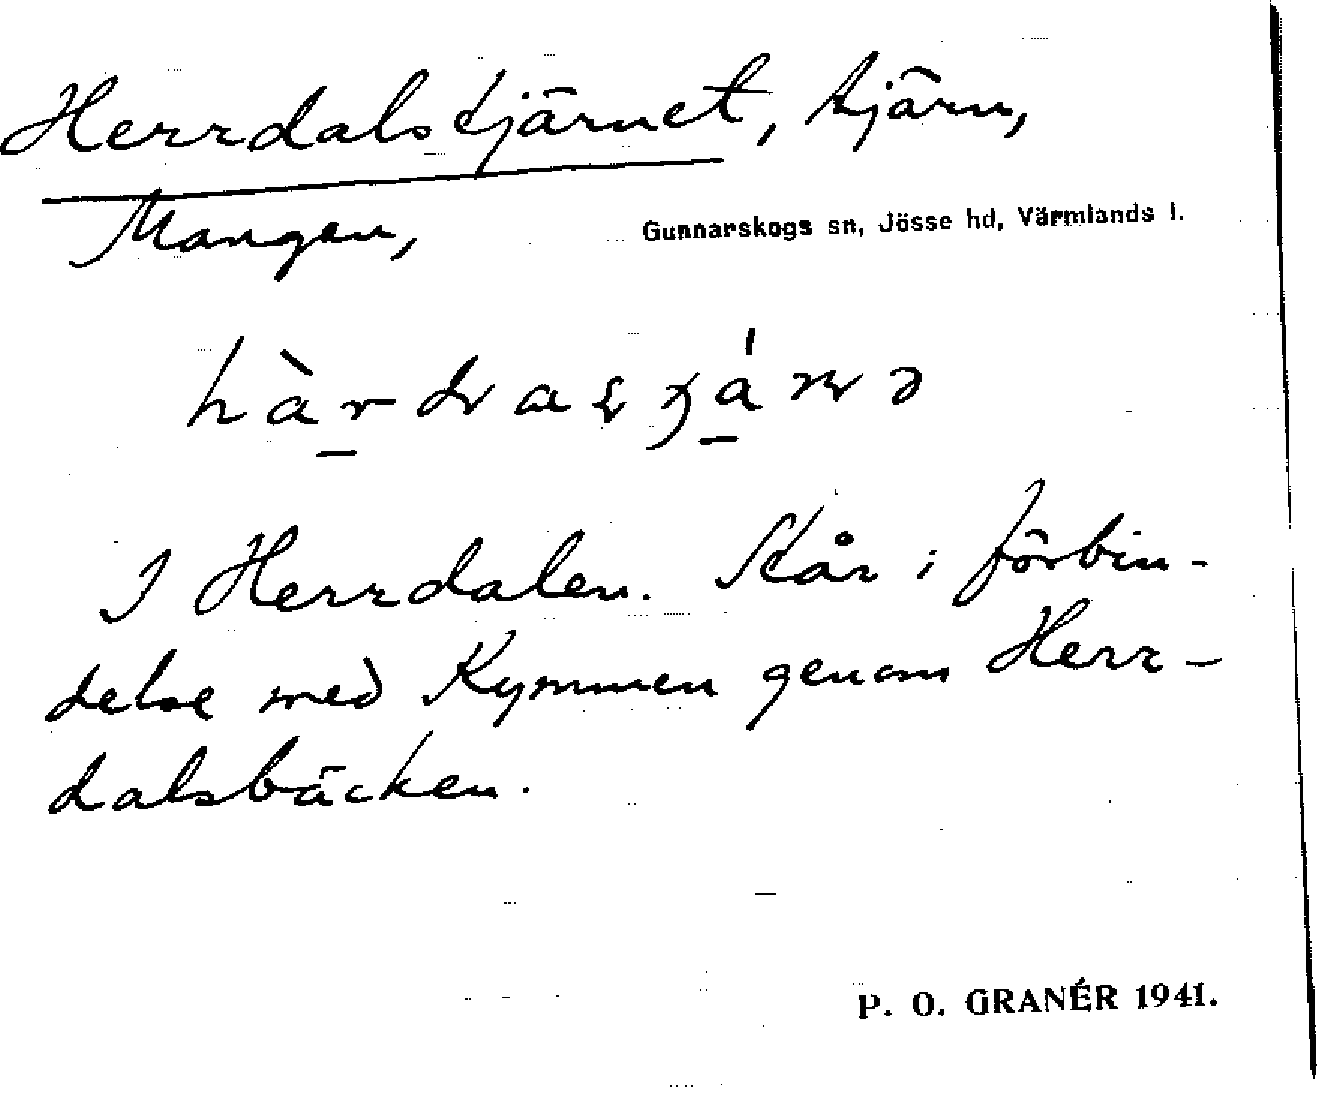 Herrdalstjärnet, tjärn,
Mangen,
Gunnarskogs sn, Jösse hd, Värmlands l.
I Herrdalen. Står i förbin-
delse med Kymmen genom Herr-
dalsbäcken.
P. O. GRANÉR 1941.